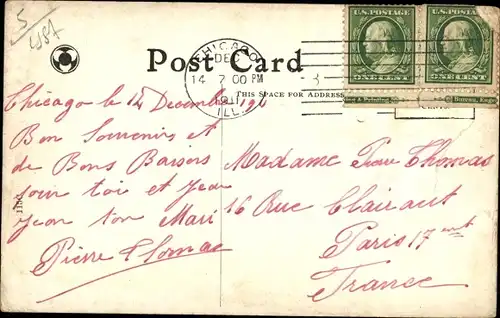 5
USA
Post Card
THIS SPACE FOR ADDRESS
CHICAGO
DEC
14 7 00 PM
ILL.
U.S. POSTAGE
ONE CENT
U.S. POSTAGE
ONE CENT
Chicago le 14 Decembre 191
Bon Souvenir et
de Bons Baisers
pour toi et Jean
Jean ton Mari
Pierre Thomas
Madame Pierre Thomas
16 Rue Clairaut
Paris 17
France